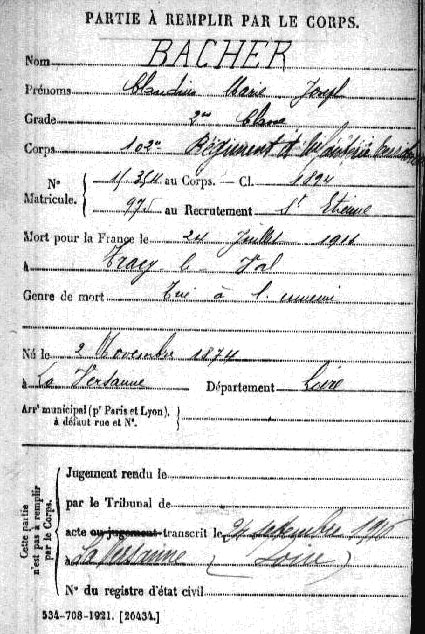 PARTIE À REMPLIR PAR LE CORPS.
Nom BACHER
Prénoms Claudius Marie Joseph
Grade 2me Classe
Corps 102e Régiment d'Infanterie
N° Matricule. au Corps. — Cl. 1894
975 au Recrutement St Etienne
Mort pour la France le 24 Juillet 1916
à Tracy le Val
Genre de mort Tué à l'ennemi
Né le 2 Novembre 1874
à La Versanne Département Loire
Arrt municipal (pr Paris et Lyon),
à défaut rue et N°.
Cette partie
n'est pas à remplir
par le Corps.
Jugement rendu le
par le Tribunal de
acte ou jugement transcrit le septembre
à La Versanne (Loire)
N° du registre d'état civil
534-708-1921. [26434.]